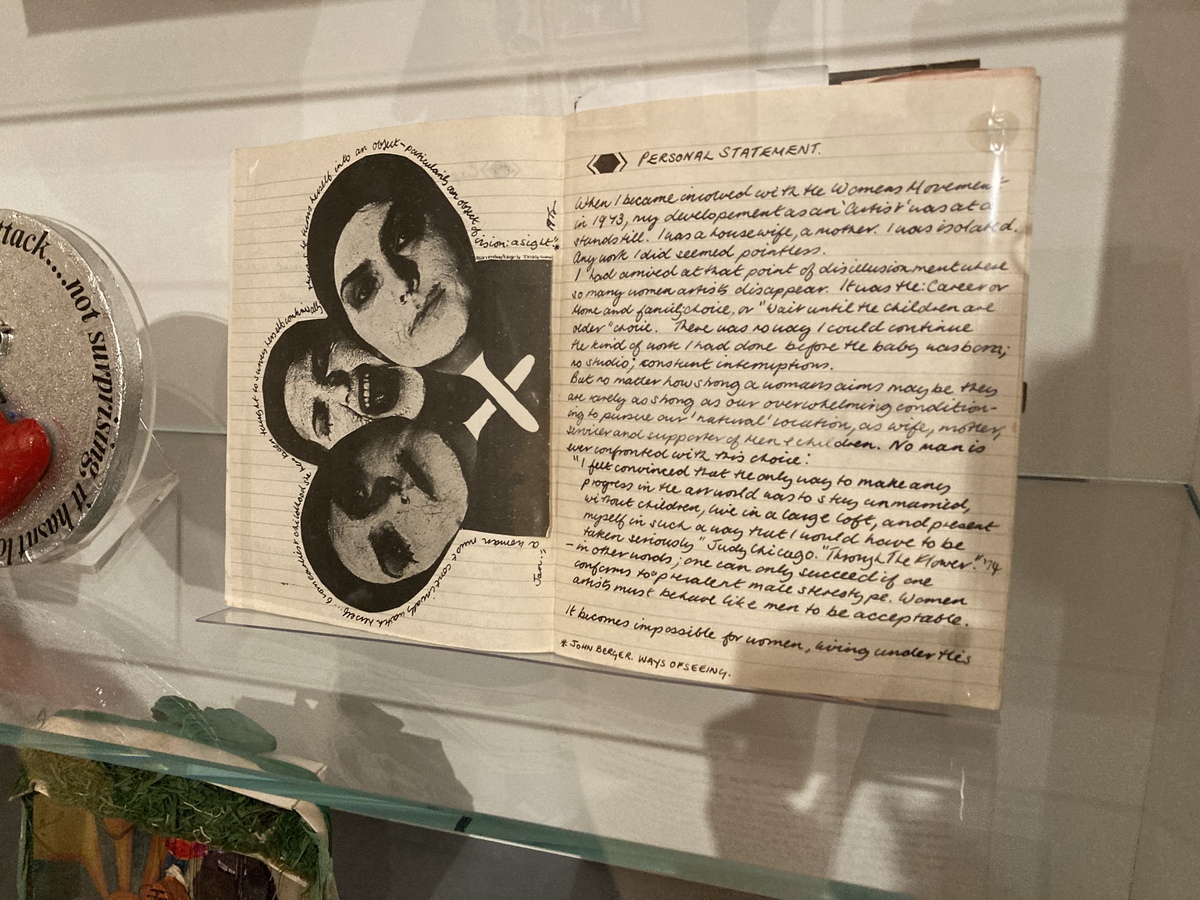 ttack....not surprising, it hasn't l
from earliest childhood
has been taught to survey herself continually
thus she turns herself into an object - particularly an object of
vision: a sight."*
1975
a woman must continually watch herself...
PERSONAL STATEMENT.
When I became involved with the Womens Movement
in 1973, my developement as an 'Artist' was at a
standstill. I was a housewife, a mother. I was isolated.
Any work I did seemed pointless.
I had arrived at that point of disillusionment where
so many women artists disappear. It was the: Career or
Home and family choice, or "Wait until the children are
older" choice. There was no way I could continue
the kind of work I had done before the baby was born;
no studio; constant interruptions.
But no matter how strong a womans aims may be they
are rarely as strong as our overwhelming condition-
ing to pursue our 'natural' vocation, as wife, mother,
servicer and supporter of Men + children. No man is
ever confronted with this choice:
"I felt convinced that the only way to make any
progress in the art world was to stay unmarried,
without children, live in a large loft, and present
myself in such a way that I would have to be
taken seriously" Judy Chicago. "Through The Flower." '74
- in other words; one can only succeed if one
conforms to a prevalent male stereotype. Women
artists must behave like men to be acceptable.
It becomes impossible for women, living under this
* JOHN BERGER. WAYS OF SEEING.